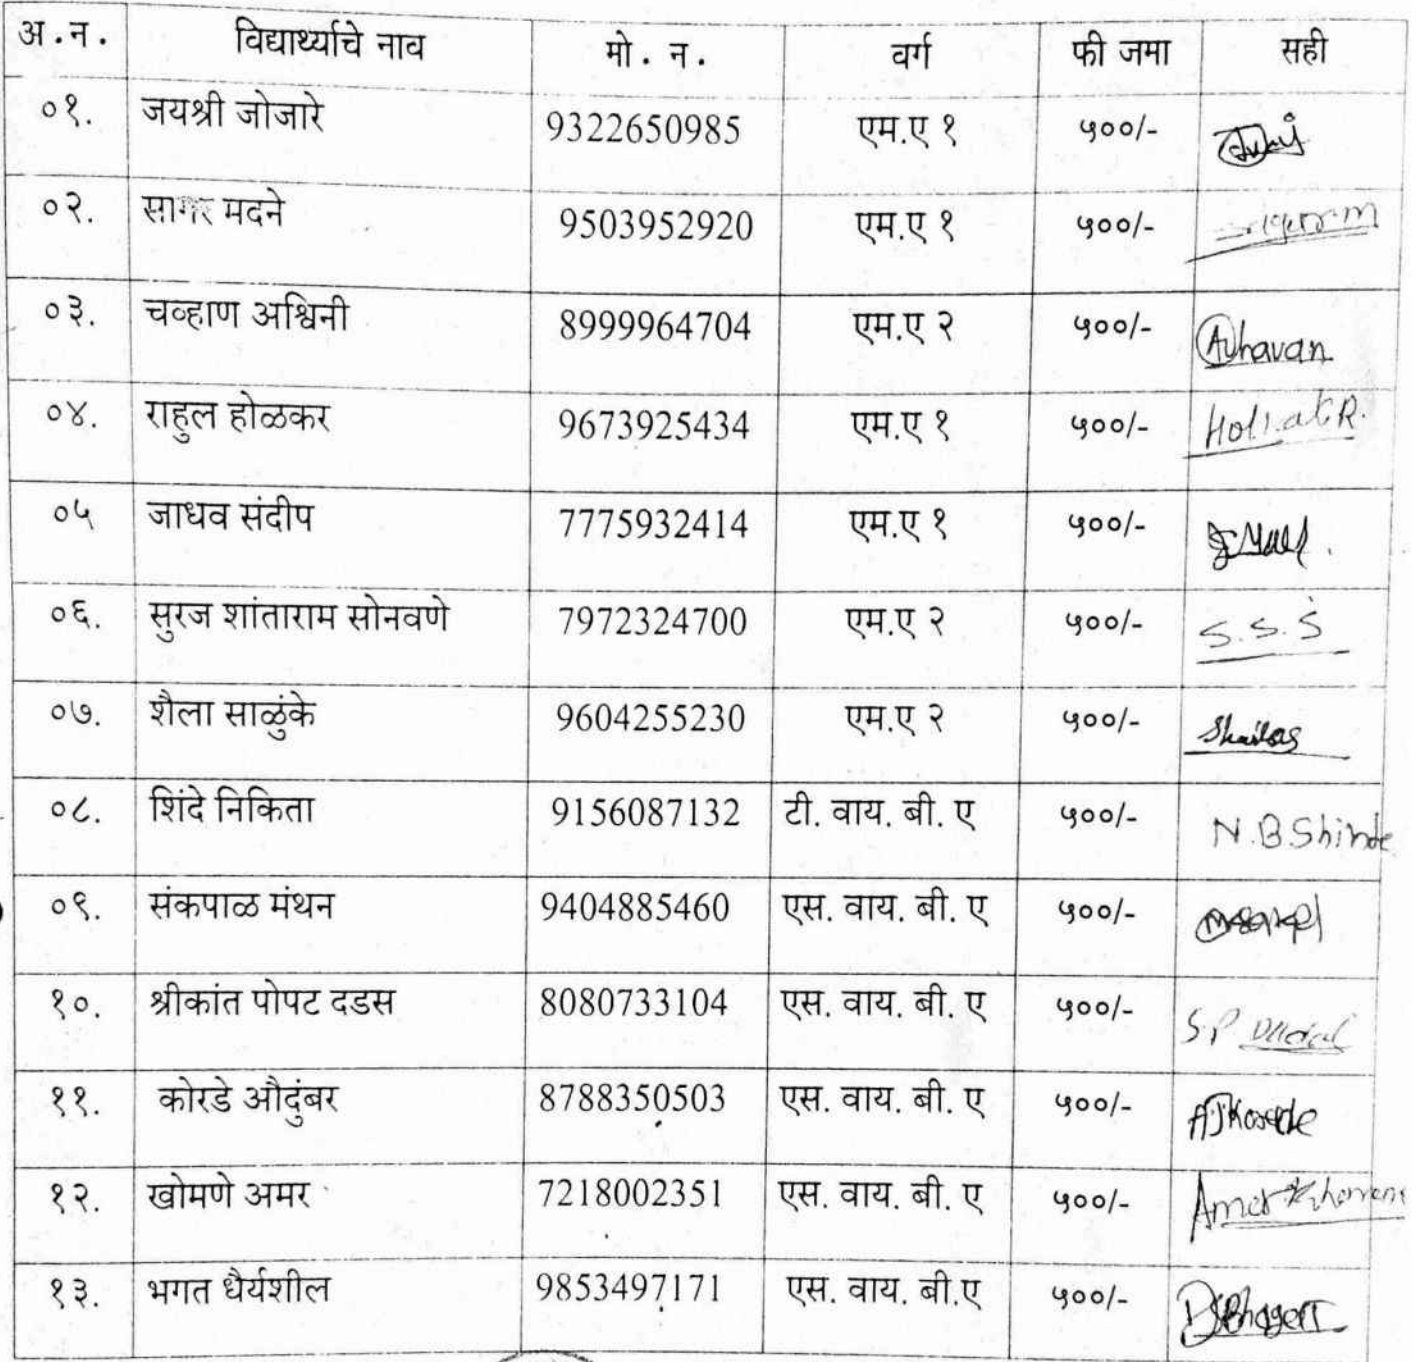 अ.न. विद्यार्थ्याचे नाव मो. न. वर्ग फी जमा सही
०१. जयश्री जोजारे 9322650985 एम.ए १ ५००/-
०२. सागर मदने 9503952920 एम.ए १ ५००/-
०३. चव्हाण अश्विनी 8999964704 एम.ए २ ५००/- Ahavan
०४. राहुल होळकर 9673925434 एम.ए १ ५००/-
०५ जाधव संदीप 7775932414 एम.ए १ ५००/-
०६. सुरज शांताराम सोनवणे 7972324700 एम.ए २ ५००/- S.S.S
०७. शैला साळुंके 9604255230 एम.ए २ ५००/-
०८. शिंदे निकिता 9156087132 टी. वाय. बी. ए ५००/- N.B.Shinde
०९. संकपाळ मंथन 9404885460 एस. वाय. बी. ए ५००/-
१०. श्रीकांत पोपट दडस 8080733104 एस. वाय. बी. ए ५००/- S.P
११. कोरडे औदुंबर 8788350503 एस. वाय. बी. ए ५००/-
१२. खोमणे अमर 7218002351 एस. वाय. बी. ए ५००/-
१३. भगत धैर्यशील 9853497171 एस. वाय. बी.ए ५००/-